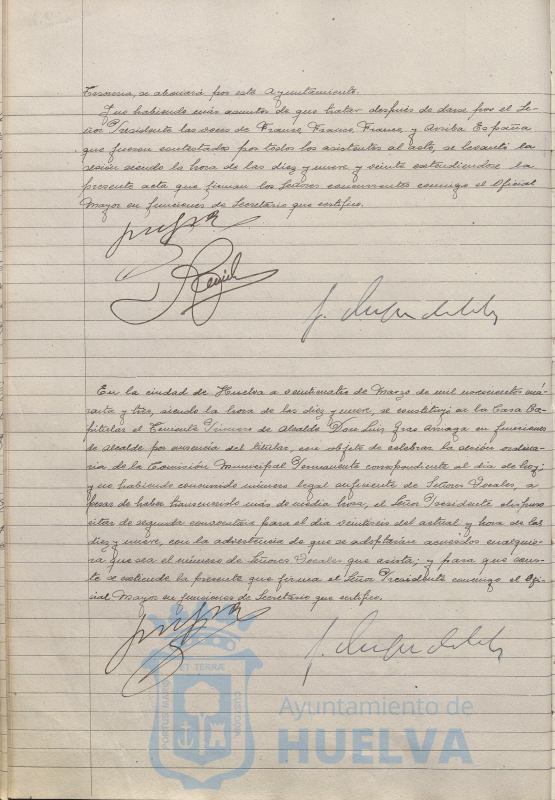 Tesoreria, se abonará por este Ayuntamiento.
Y no habiendo más asuntos de que tratar después de darse por el Se-
ñor Presidente las voces de Franco, Franco, Franco, y Arriba España
que fueron contestadas por todos los asistentes al acto, se levantó la
sesión siendo la hora de las diez y nueve y veinte extendiéndose la
presente acta que firman los Señores concurrentes conmigo el Oficial
Mayor en funciones de Secretario que certifico.
En la ciudad de Huelva a veinticuatro de Marzo de mil novecientos cua-
renta y tres, siendo la hora de las diez y nueve, se constituyó en la Casa Ca-
pitular el Teniente Primero de Alcalde Don Luis Arriaga en funciones
de Alcalde por ausencia del titular, con objeto de celebrar la sesión ordina-
ria de la Comisión Municipal Permanente correspondiente al dia de hoy;
y no habiendo concurrido número legal suficiente de Señores Vocales, a
pesar de haber transcurrido más de media hora, el Señor Presidente dispuso
citar de segunda convocatoria para el dia veintiseis del actual y hora de las
diez y nueve, con la advertencia de que se adoptarán acuerdos cualquie-
ra que sea el número de Señores Vocales que asista; y para que cons-
te se extiende la presente que firma el Señor Presidente conmigo el Ofi-
cial Mayor en funciones de Secretario que certifico.
PORTUS MARIS ET TERRÆ CUSTODIA
Ayuntamiento de
HUELVA